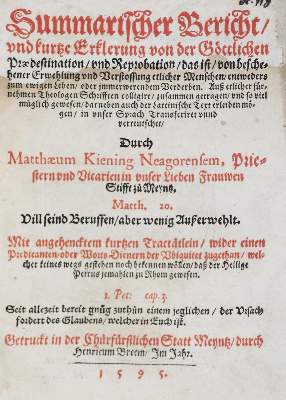 Summarischer Bericht/
vnd kurtze Erklerung von der Göttlichen
Prædestination/ vnd Reprobation/ das ist/ von besche-
hener Erwehlung vnd Verstossung etlicher Menschen/ entweders
zum ewigen Leben/ oder jmmerwerendem Verderben. Auß etlicher für-
nehmen Theologen Schrifften colligirt/ zusammen getragen/ vnd so viel
müglich gewesen/ darneben auch der lateinische Text erleiden mö-
gen/ in vnser Sprach Transferirt vnnd
verteutschet/
Durch
Matthæum Kiening Neagorensem, Prie-
stern vnd Vicarien in vnser Lieben Frauwen
Stifft zu Meyntz.
Matth. 20.
Vill seind Beruffen/ aber wenig Außerwehlt.
Mit angehencktem kurtzen Tractätlein/ wider einen
Predicanten/ oder Worts-Dienern der Vbiquitet zugethan/ wel-
cher keines wegs gestehen noch bekennen wöllen/ daß der Heilige
Petrus jemahlen zu Rhom gewesen.
1. Pet: cap. 3.
Seit allezeit bereit gnůg zuthůn einem jeglichen/ der Vrsach
fordert des Glaubens/ welcher in Euch ist.
Getruckt in der Chürfürstlichen Statt Meyntz/ durch
Henricum Breem/ Im Jahr.
1595.